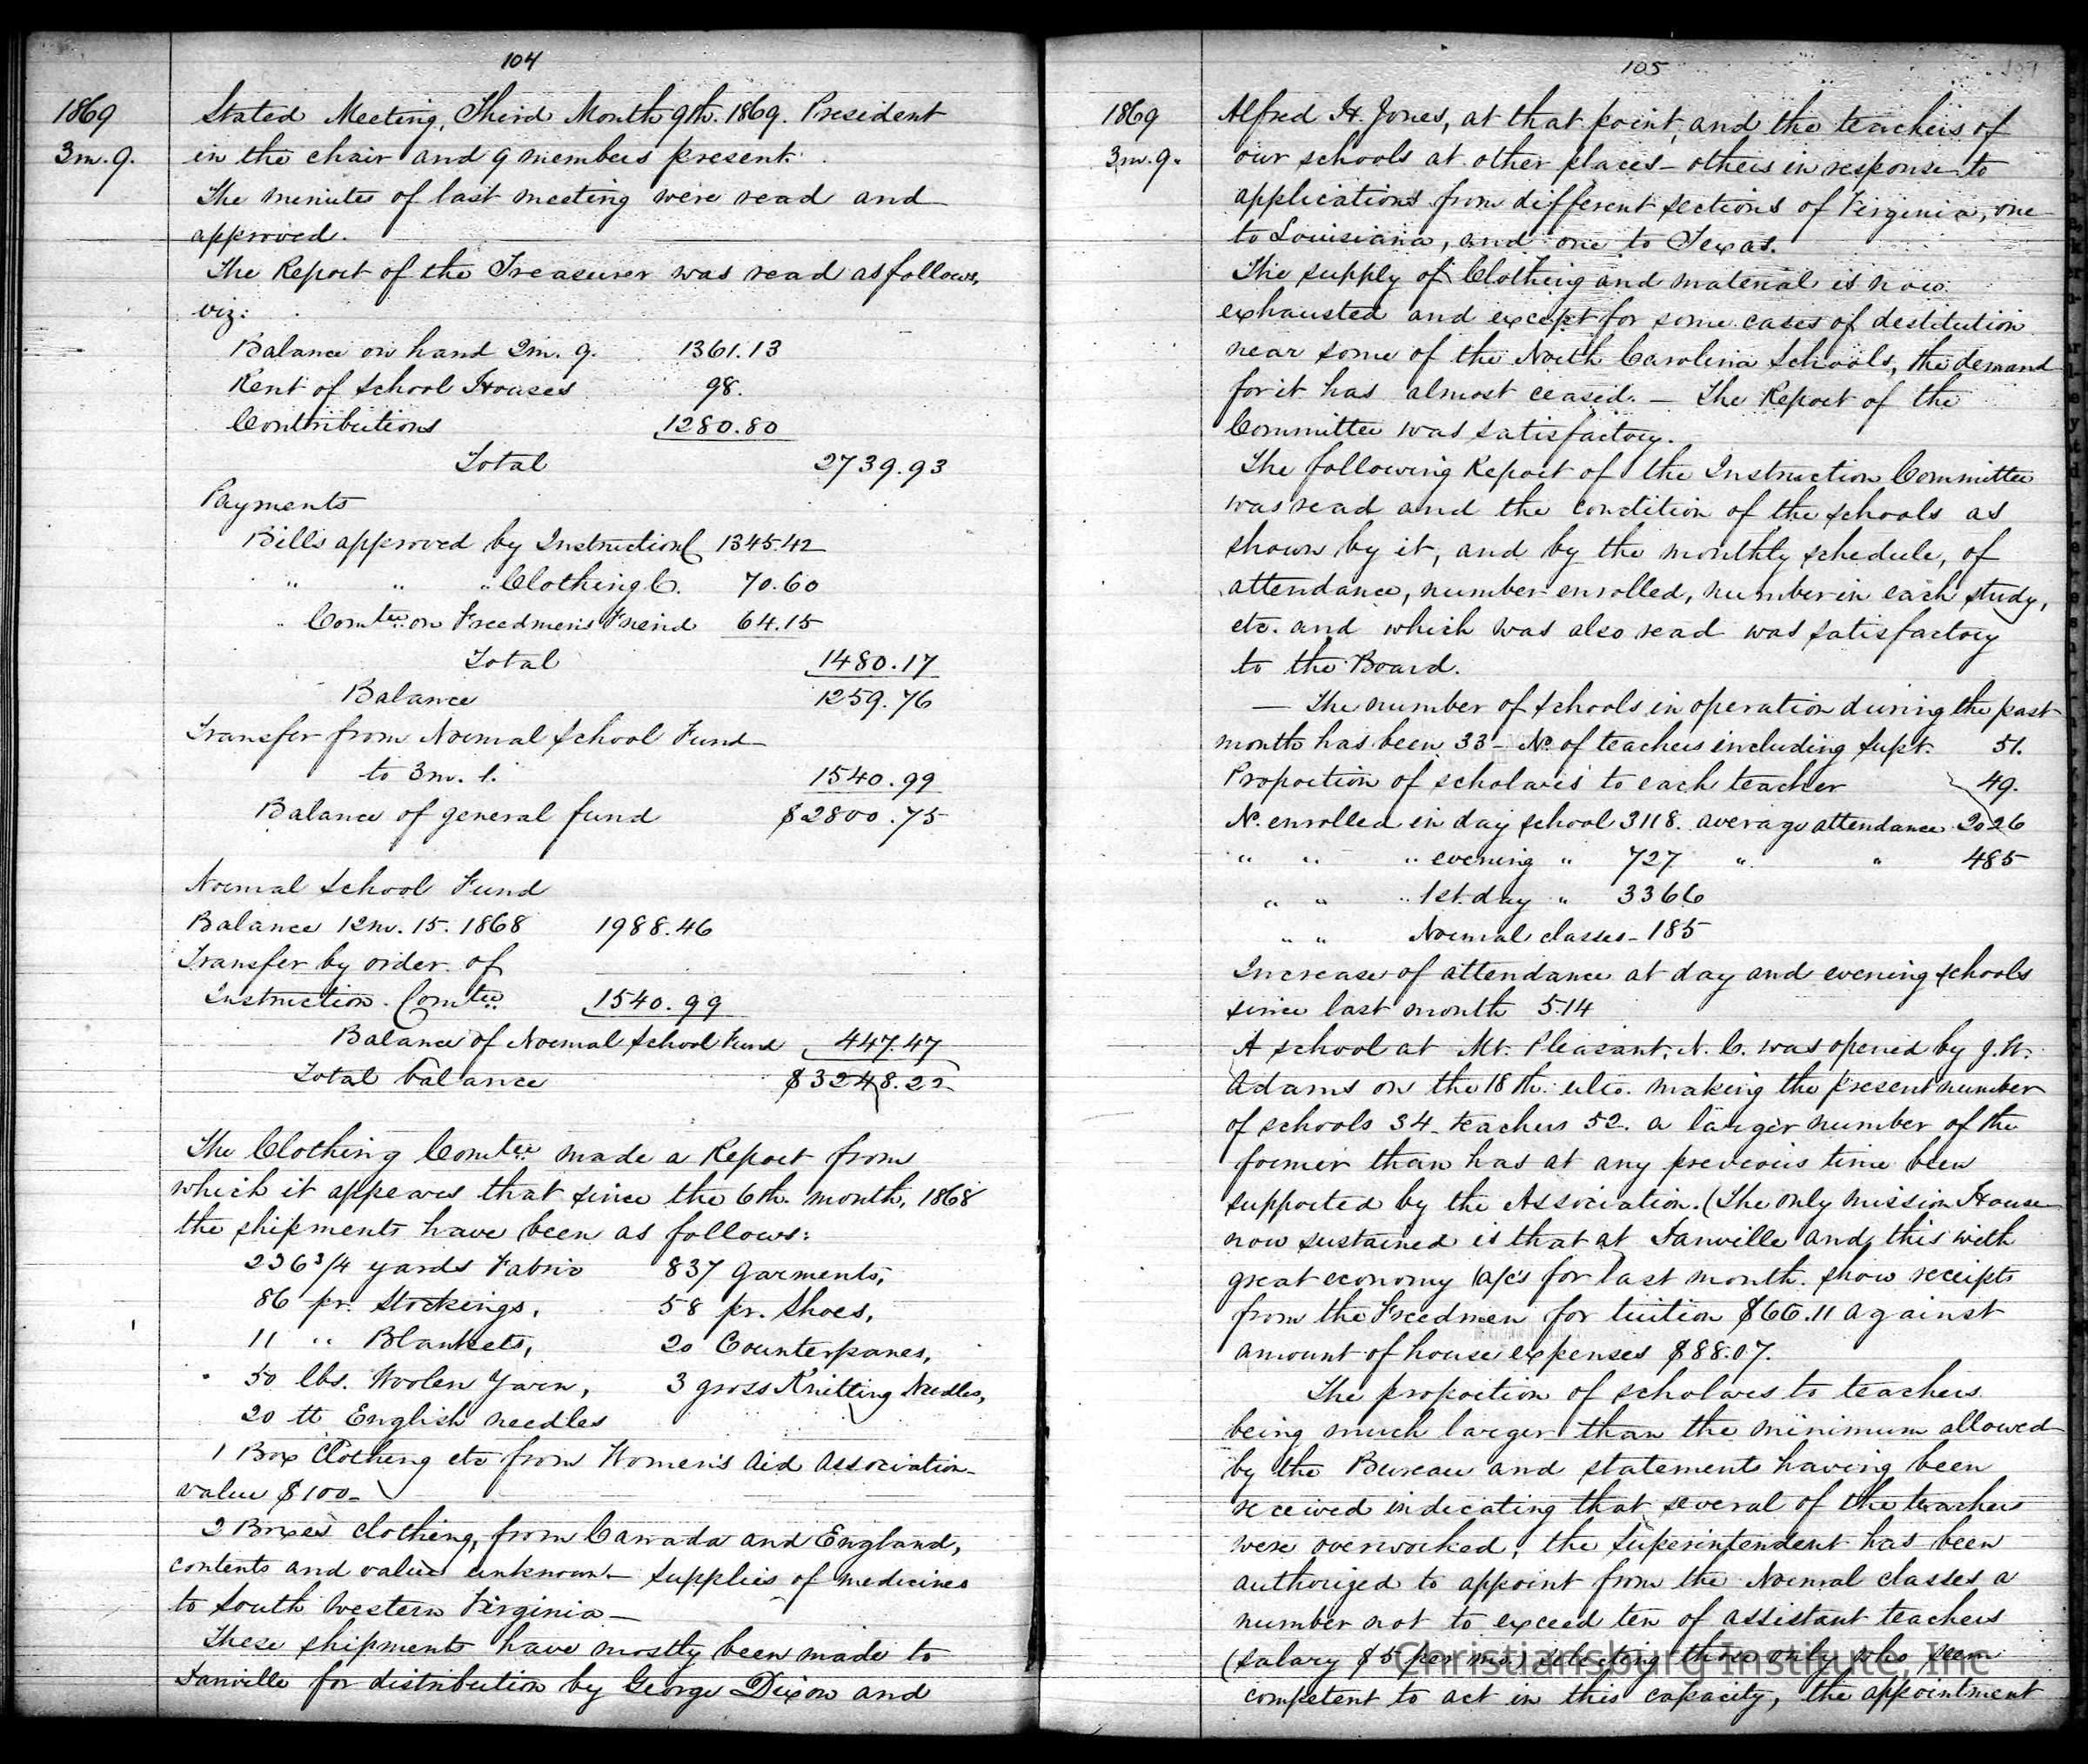 104
1869
3m. 9.
Stated Meeting, Third Month 9th. 1869. President
in the chair and 9 members present.
The minutes of last meeting were read and
approved.
The Report of the Treasurer was read as follows,
viz:
Balance on hand 2m. 9. 1361.13
Rent of School Houses 98.
Contributions 1280.80
Total 2739.93
Payments
Bills approved by Instruction C 1345.42
" " " Clothing C. 70.60
" Comtee on Freedmen's Friend 64.15
Total 1480.17
Balance 1259.76
Transfer from Normal School Fund
to 3m. 1. 1540.99
Balance of general fund $2800.75
Normal School Fund
Balance 12m. 15. 1868 1988.46
Transfer by order of
Instruction Comtee 1540.99
Balance of Normal School Fund 447.47
Total balance $3248.22
The Clothing Comtee made a Report from
which it appears that since the 6th. month, 1868
the shipments have been as follows:
236 3/4 yards Fabric 837 Garments,
86 pr. Stockings, 58 pr. Shoes,
11 " Blankets, 20 Counterpanes,
50 lbs. Woolen Yarn, 3 gross Knitting Needles,
20 tt English needles
1 Box Clothing etc from Women's Aid Association
value $100-
2 Boxes Clothing, from Canada and England,
contents and value unknown- supplies of medicines
to South Western Virginia-
These shipments have mostly been made to
Danville for distribution by George Dixon and
105
1869
3m. 9.
Alfred H. Jones, at that point, and the teachers of
our schools at other places- others in response to
applications from different sections of Virginia, one
to Louisiana, and one to Texas.
The supply of Clothing and material is now
exhausted and except for some cases of destitution
near some of the North Carolina Schools, the demand
for it has almost ceased. - The Report of the
Committee was satisfactory.
The following Report of the Instruction Committee
was read and the condition of the schools as
shown by it, and by the monthly schedule, of
attendance, number enrolled, number in each study,
etc. and which was also read was satisfactory
to the Board.
- The number of schools in operation during the past
month has been 33- No. of teachers including Supt. 51.
Proportion of scholars to each teacher 49.
No. enrolled in day school 3118. average attendance 2026
" " " evening " 727 " " 485
" " " 1st. day " 3366
" " Normal classes- 185
Increase of attendance at day and evening schools
since last month 514
A school at Mt. Pleasant, N. C. was opened by J. W.
Adams on the 18th. ulto. making the present number
of schools 34- teachers 52. a larger number of the
former than has at any previous time been
supported by the Association. (The only Mission House
now sustained is that at Danville and this with
great economy (a/c's for last month show receipts
from the Freedmen for tuition $66.11 against
amount of house expenses $88.07.
The proportion of scholars to teachers
being much larger than the minimum allowed
by the Bureau and statements having been
received indicating that several of the teachers
were overworked, the Superintendent has been
authorized to appoint from the Normal classes a
number not to exceed ten of assistant teachers
(salary $5 per mo.) selecting those only who seem
competent to act in this capacity, the appointment
Christiansburg Institute, Inc